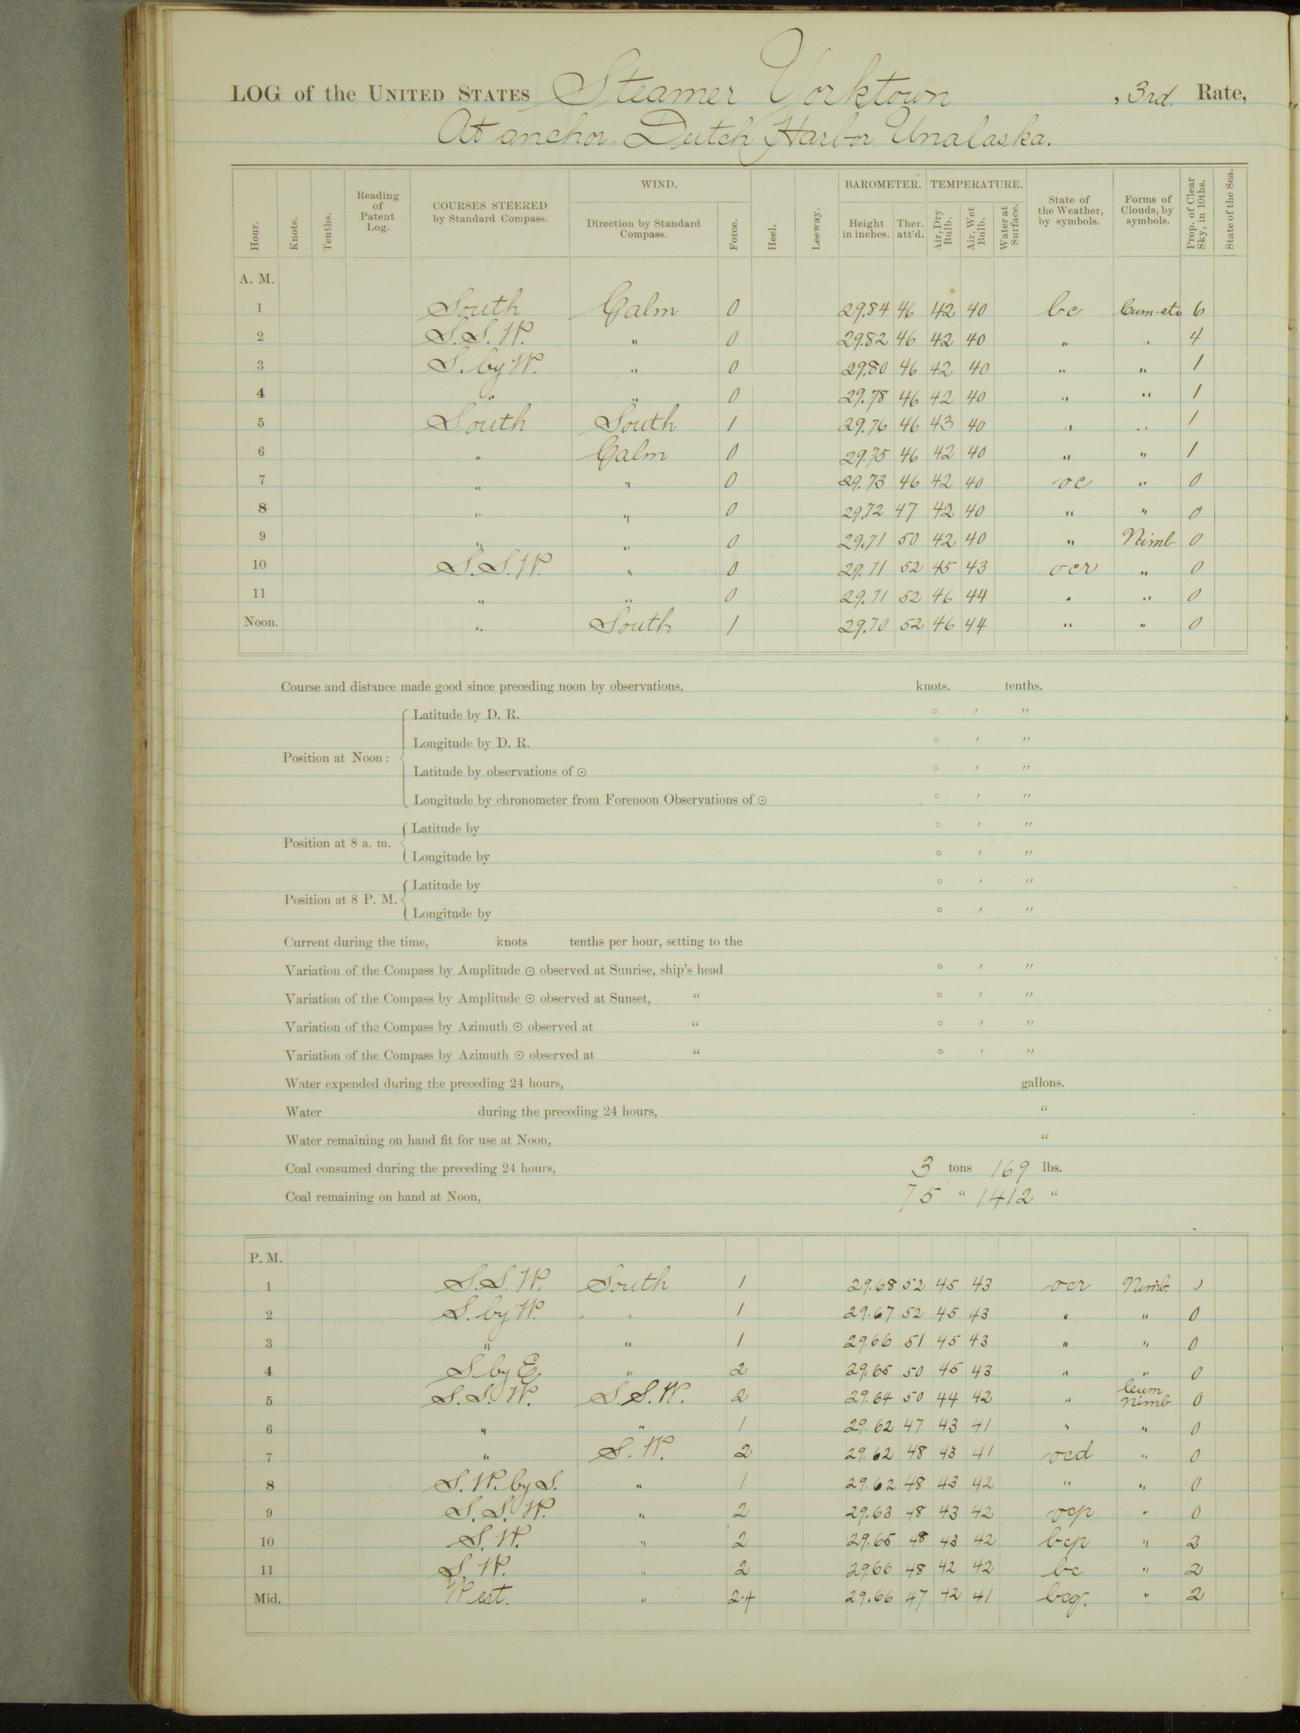 LOG of the UNITED STATES Steamer Yorktown, 3rd. Rate,
At anchor, Dutch Harbor Unalaska.
Hour. Knots. Tenths. Reading of Patent Log. COURSES STEERED by Standard Compass. WIND. Direction by Standard Compass. Force. Heel. Leeway. BAROMETER. Height in inches. Ther. att'd. TEMPERATURE. Air, Dry Bulb. Air, Wet Bulb. Water at Surface. State of the Weather, by symbols. Forms of Clouds, by symbols. Prop. of Clear Sky, in 10ths. State of the Sea.
A. M.
1 South Calm 0 29.84 46 42 40 bc 6
2 S.S.W. " 0 29.82 46 42 40 " " 4
3 S. by W. " 0 29.80 46 42 40 " " 1
4 " " 0 29.78 46 42 40 " " 1
5 South South 1 29.76 46 43 40 " " 1
6 " Calm 0 29.75 46 42 40 " " 1
7 " " 0 29.73 46 42 40 oc " 0
8 " " 0 29.72 47 42 40 " " 0
9 " " 0 29.71 50 42 40 " Nimb 0
10 S.S.W. " 0 29.71 52 45 43 ocr " 0
11 " " 0 29.71 52 46 44 " " 0
Noon. " South 1 29.70 52 46 44 " " 0
Course and distance made good since preceding noon by observations, knots. tenths.
Latitude by D. R. ° ′ ″
Longitude by D. R. ° ′ ″
Position at Noon:
Latitude by observations of ☉ ° ′ ″
Longitude by chronometer from Forenoon Observations of ☉ ° ′ ″
Latitude by ° ′ ″
Position at 8 a. m.
Longitude by ° ′ ″
Latitude by ° ′ ″
Position at 8 P. M.
Longitude by ° ′ ″
Current during the time, knots tenths per hour, setting to the
Variation of the Compass by Amplitude ☉ observed at Sunrise, ship's head ° ′ ″
Variation of the Compass by Amplitude ☉ observed at Sunset, " ° ′ ″
Variation of the Compass by Azimuth ☉ observed at " ° ′ ″
Variation of the Compass by Azimuth ☉ observed at " ° ′ ″
Water expended during the preceding 24 hours, gallons.
Water during the preceding 24 hours, "
Water remaining on hand fit for use at Noon, "
Coal consumed during the preceding 24 hours, 3 tons 169 lbs.
Coal remaining on hand at Noon, 75 " 1412 "
P. M.
1 S.S.W. South 1 29.68 52 45 43 ocr Nimb. 0
2 S. by W. " 1 29.67 52 45 43 " " 0
3 " " 1 29.66 51 45 43 " " 0
4 S. by E. " 2 29.65 50 45 43 " " 0
5 S.S.W. S.S.W. 2 29.64 50 44 42 " Cum Nimb 0
6 " " 1 29.62 47 43 41 " " 0
7 " S.W. 2 29.62 48 43 41 ocd " 0
8 S.W. by S. " 1 29.62 48 43 42 " " 0
9 S.S.W. " 2 29.63 48 43 42 ocp " 0
10 S.W. " 2 29.65 48 43 42 bcp " 2
11 S.W. " 2 29.66 48 42 42 bc " 2
Mid. West. " 2-4 29.66 47 42 41 bcq. " 2